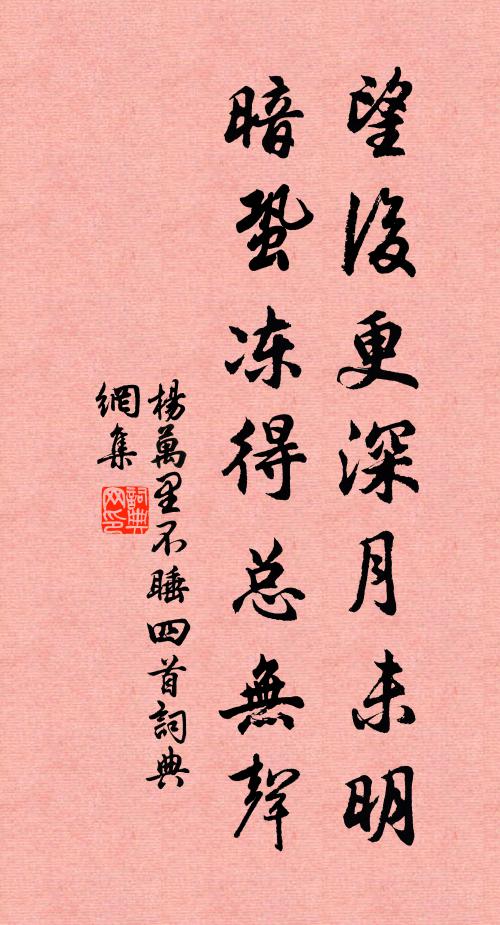 望後更深月未明
暗蛩冻得总無聲
楊萬里不睡四首詞典
網集
詞典
网印